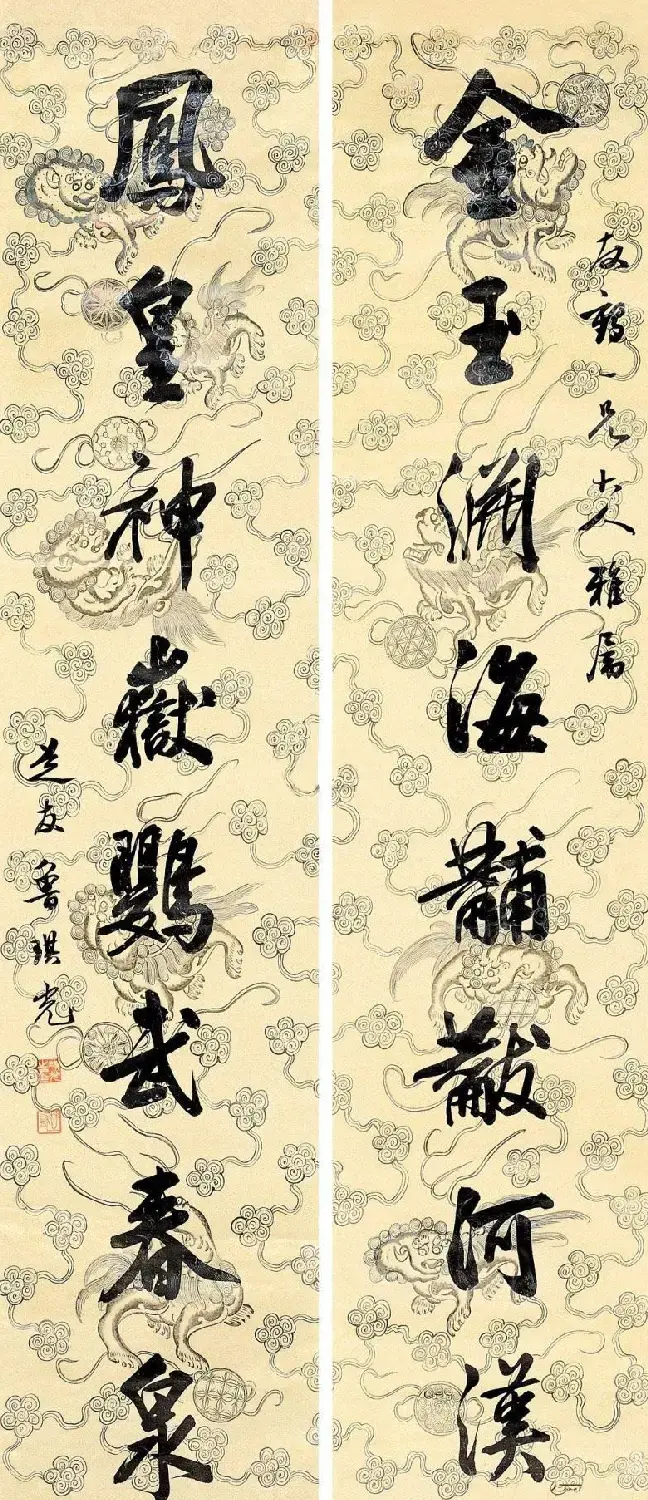 友鶴一兄大人雅属
金玉淵海黼黻河漢
鳳皇神嶽鸚武春泉
芝友魯琪光